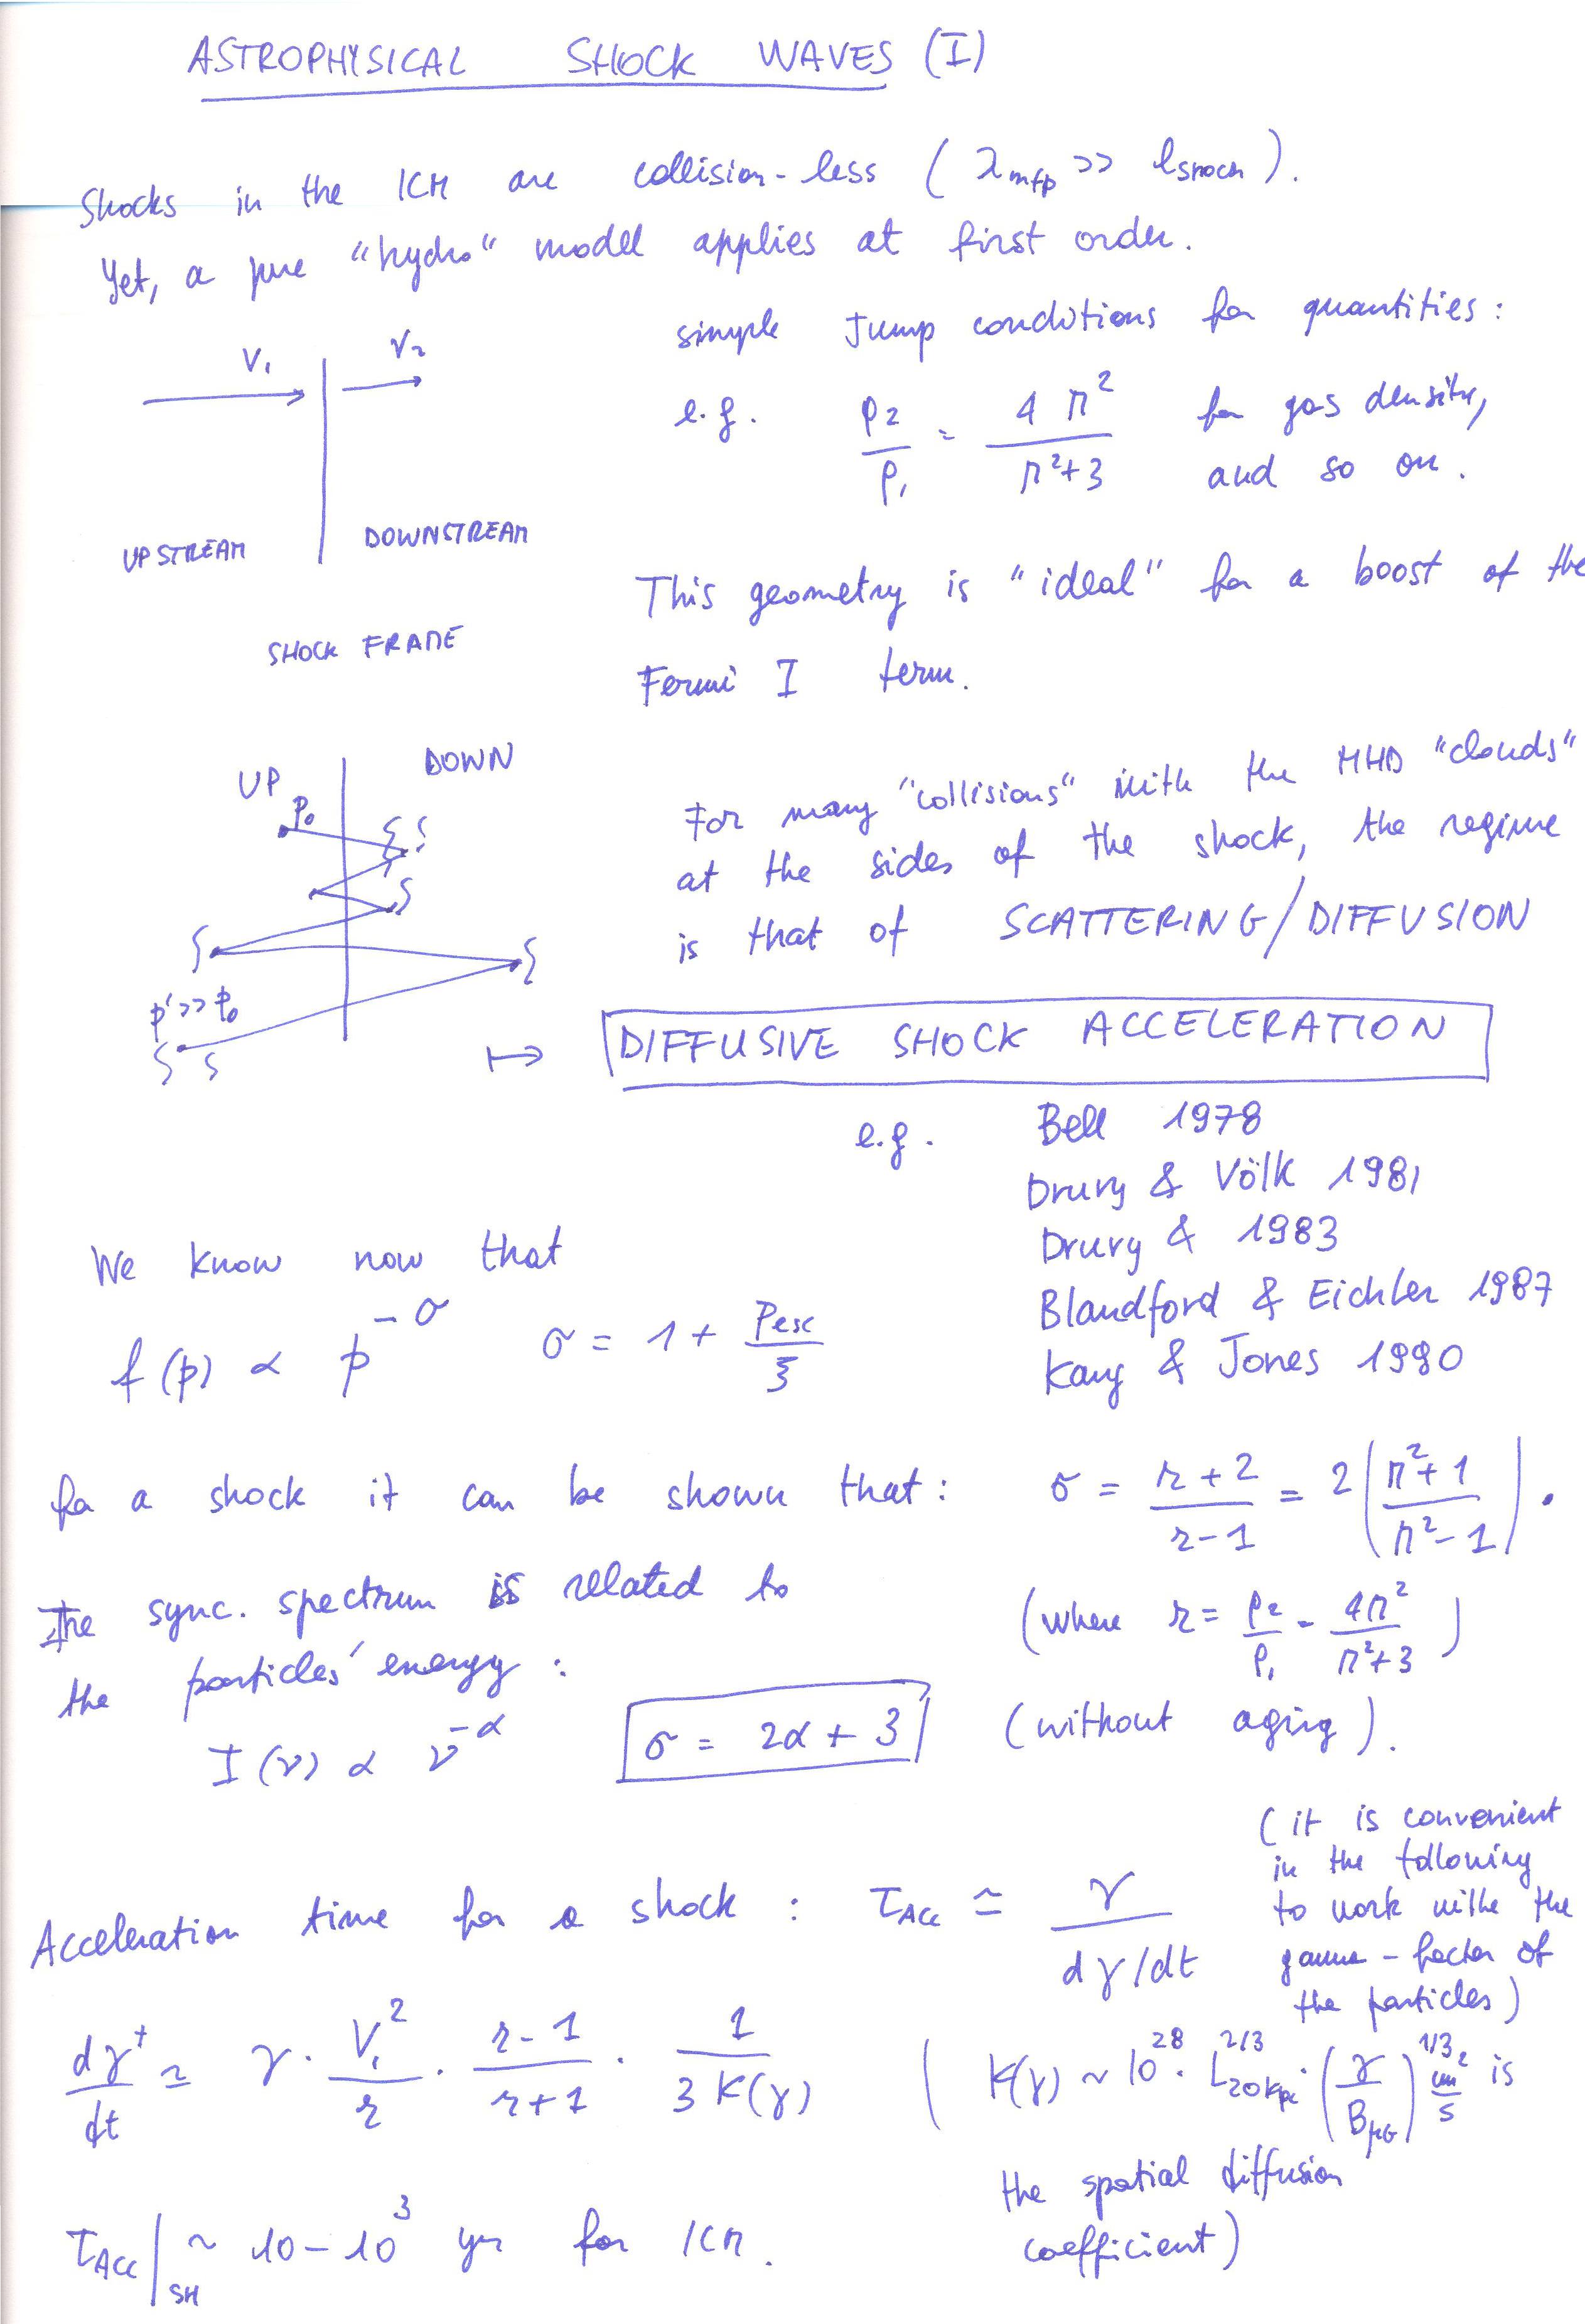 ASTROPHYSICAL SHOCK WAVES (I)
Shocks in the ICM are collision-less ( λmfp >> lshock ).
Yet, a pure "hydro" model applies at first order.
simple Jump conditions for quantities :
V₁ V₂
e.g. ρ₂/ρ₁ = 4 M²/(M²+3) for gas density,
and so on.
UPSTREAM DOWNSTREAM
SHOCK FRAME
This geometry is "ideal" for a boost of the
Fermi I term.
UP DOWN
p₀
p' >> p₀
For many "collisions" with the MHD "clouds"
at the sides of the shock, the regime
is that of SCATTERING/DIFFUSION
↦ DIFFUSIVE SHOCK ACCELERATION
e.g. Bell 1978
Drury & Völk 1981
Drury & 1983
Blandford & Eichler 1987
Kang & Jones 1990
We know now that
f(p) ∝ p^-σ σ = 1 + Pesc/ξ
for a shock it can be shown that : σ = (r+2)/(r-1) = 2 ( (M²+1)/(M²-1) ) .
(where r = ρ₂/ρ₁ = 4M²/(M²+3) )
The sync. spectrum is related to
the particles' energy :
I(ν) ∝ ν^-α σ = 2α + 3 (without aging).
Acceleration time for a shock : τACC ≃ γ/(dγ/dt)
(it is convenient
in the following
to work withe the
gamma-factor of
the particles)
dγ⁺/dt ≃ γ · V₁²/r · (r-1)/(r+1) · 1/(3 K(γ))
( K(γ) ~ 10²⁸ · L20kpc^2/3 · (γ/BμG)^1/3 cm²/s is
the spatial diffusion
coefficient)
τACC|SH ~ 10 - 10³ yr for ICM.